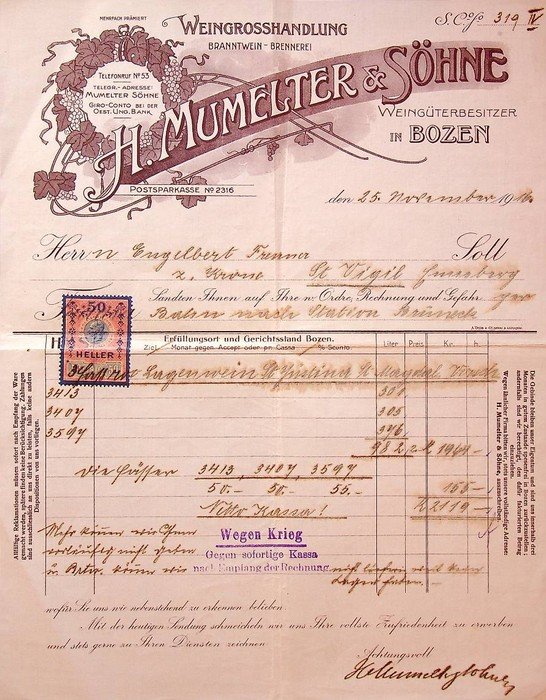 MEHRFACH PRÄMIIERT
WEINGROSSHANDLUNG
BRANNTWEIN-BRENNEREI
S. Co/o 319 IV
TELEFONRUF No 53
TELEGR.-ADRESSE:
MUMELTER SÖHNE
GIRO-CONTO BEI DER
OEST. UNG. BANK
H. MUMELTER & SÖHNE
WEINGÜTERBESITZER
IN BOZEN
POSTSPARKASSE No 2316
den 25. November 191
Herrn Engelbert
z. Krone St Vigil Enneberg
Soll
Sandten Ihnen auf Ihre n Ordre, Rechnung und Gefahr per
Bahn nach Station Bruneck
50
HELLER
Erfüllungsort und Gerichtsstand Bozen.
Ziel Monat gegen Accept oder pr. Cassa % Sconto.
Liter Preis Kr. h
Lagenwein St Justina St Magdal.
3413 301
3407 305
3597 376
982 2.- 1964.-
die Fässer 3413, 3407, 3597
50.- 50.- 55.- 155.-
Netto Kassa! 2119.-
Mehr können wir Ihnen
vorläufig nicht geben
Wegen Krieg
Gegen sofortige Kassa
nach Empfang der Rechnung.
Allfällige Reclamationen müssen sofort nach Empfang der Ware
gemacht werden, spätere finden keine Berücksichtigung. Zahlungen
sind ausschliesslich an uns direct zu leisten, falls keine andern
Dispositionen von uns vorliegen.
Die Gebinde bleiben unser Eigentum und sind uns innerhalb drei
Monaten in gutem Zustande spesenfrei in Bozen zurückzustellen;
andernfalls sind wir berechtigt, den dafür fakturierten Betrag
einzuziehen.
Wegen ähnlicher Firma bitten wir, stets unsere vollständige Adresse:
H. Mumelter & Söhne, auszuschreiben.
wofür Sie uns wie nebenstehend zu erkennen belieben.
Mit der heutigen Sendung schmeicheln wir uns Ihre vollste Zufriedenheit zu erwerben
und stets gerne zu Ihren Diensten zeichnen
Achtungsvoll
HMumelterSöhne